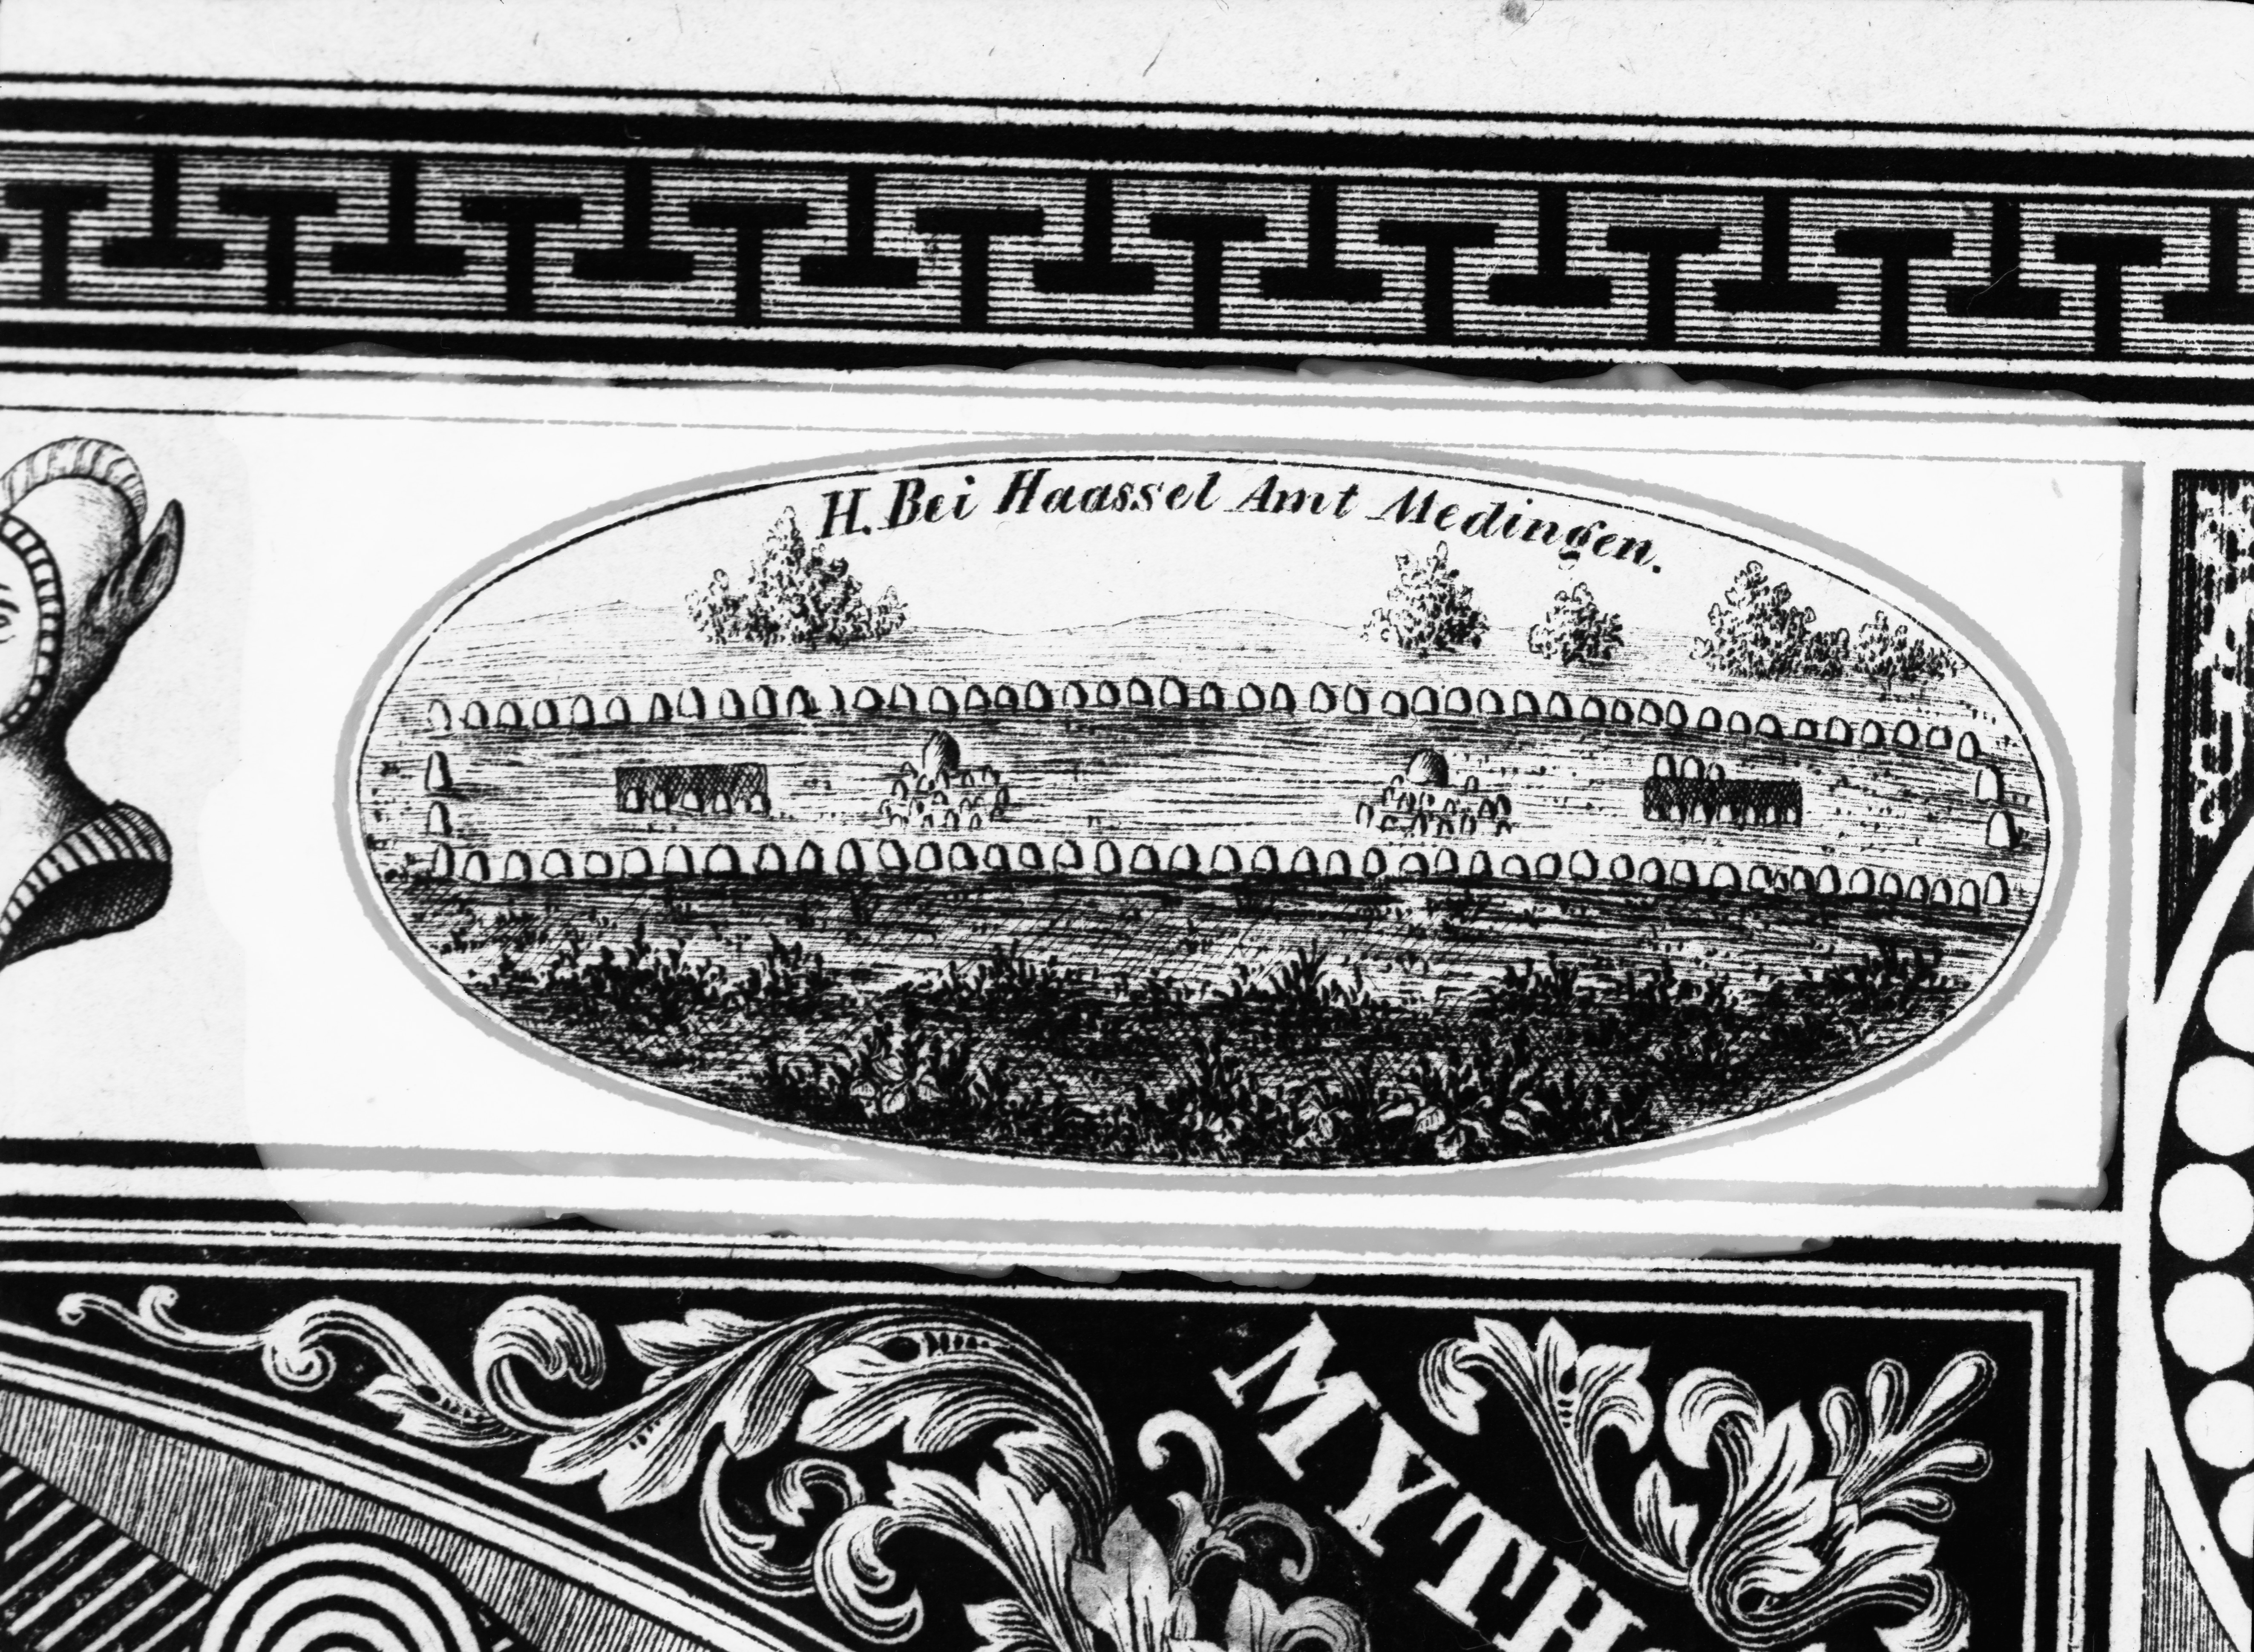 H. Bei Haassel Amt Medingen.
MYTH